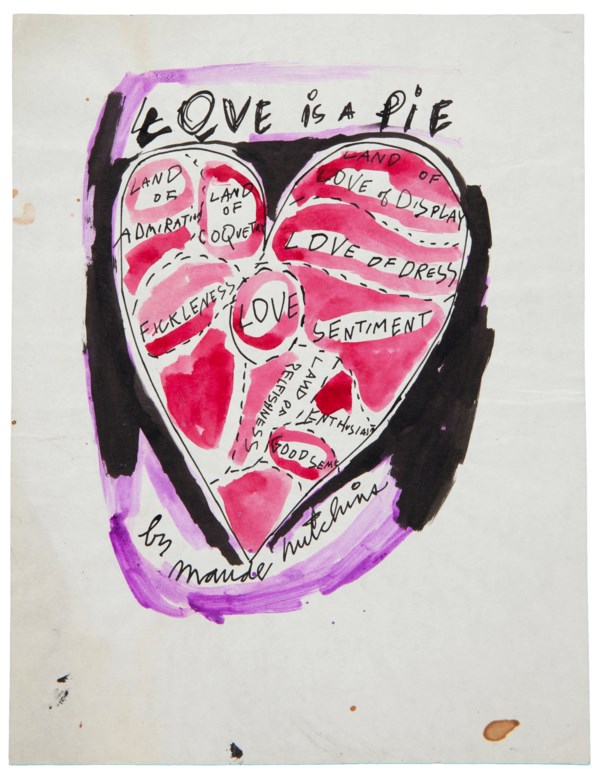 LOVE is A PiE
LAND
OF
ADMIRATION
LAND
OF
COQUETRY
LAND OF
LOVE of DISPLAY
LOVE OF DRESS
FICKLENESS
LOVE
SENTIMENT
LAND OF
SELFISHNESS
ENTHUSIASM
GOOD SENSE
by
maude hutchins